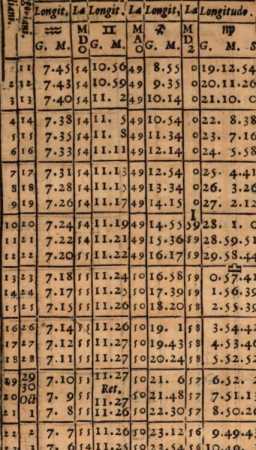 Longit. La Longit. La Longit. La Longitudo.
♒ M ♊ M ♐ M ♍
G. M. G. M. G. M. G. M. S
1 11 7.45 54 10.56 49 8.55 0 19.12.54
2 12 7.43 54 10.59 49 9.35 0 20.11.26
3 13 7.40 54 11. 2 49 10.14 0 21.10. 0
14 7.38 54 11. 5 49 10.54 0 22. 8.38
15 7.35 54 11. 8 49 11.34 0 23. 7.16
6 16 7.33 54 11.11 49 12.14 0 24. 5.58
7 17 7.31 54 11.13 49 12.54 0 25. 4.41
8 18 7.28 54 11.15 49 13.34 0 26. 3.26
9 19 7.26 54 11.17 49 14.15 0 27. 2.12
10 20 7.24 54 11.19 49 14.55 59 28. 1. 0
11 21 7.22 54 11.21 49 15.36 59 28.59.51
12 22 7.20 55 11.22 49 16.17 59 29.58.44
♎
13 23 7.18 55 11.24 50 16.58 59 0.57.41
14 24 7.17 55 11.25 50 17.39 59 1.56.39
15 25 7.15 55 11.26 50 18.20 58 2.55.39
16 26 7.14 55 11.26 50 19. 1 58 3.54.42
17 27 7.12 55 11.26 50 19.43 58 4.53.46
18 28 7.11 55 11.27 50 20.24 58 5.52.52
19 29 7.10 55 11.27 50 21. 6 57 6.52. 2
20 30 7. 9 55 Ret. 11.27 50 21.48 57 7.51.13
Oct 1 7. 8 55 11.26 50 22.30 57 8.50.26
2 7. 7 55 11.26 50 23.12 56 9.49.4